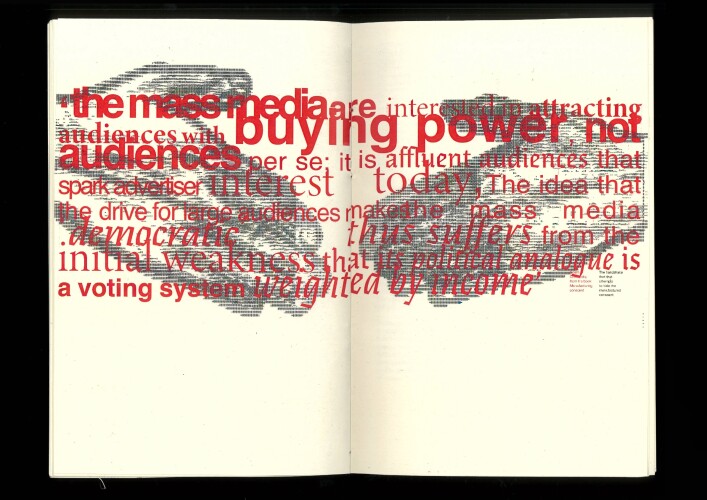 'the mass media are interested in attracting
audiences with buying power, not
audiences per se; it is affluent audiences that
spark advertiser interest today, The idea that
the drive for large audiences makes the mass media
'democratic thus suffers from the
initial weakness that its political analogue is
a voting system weighted by income'